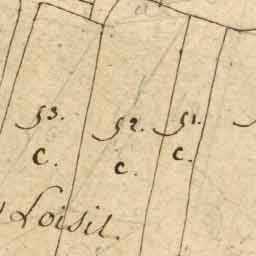 53. 52. 51.
C. C. C.
Loisil.